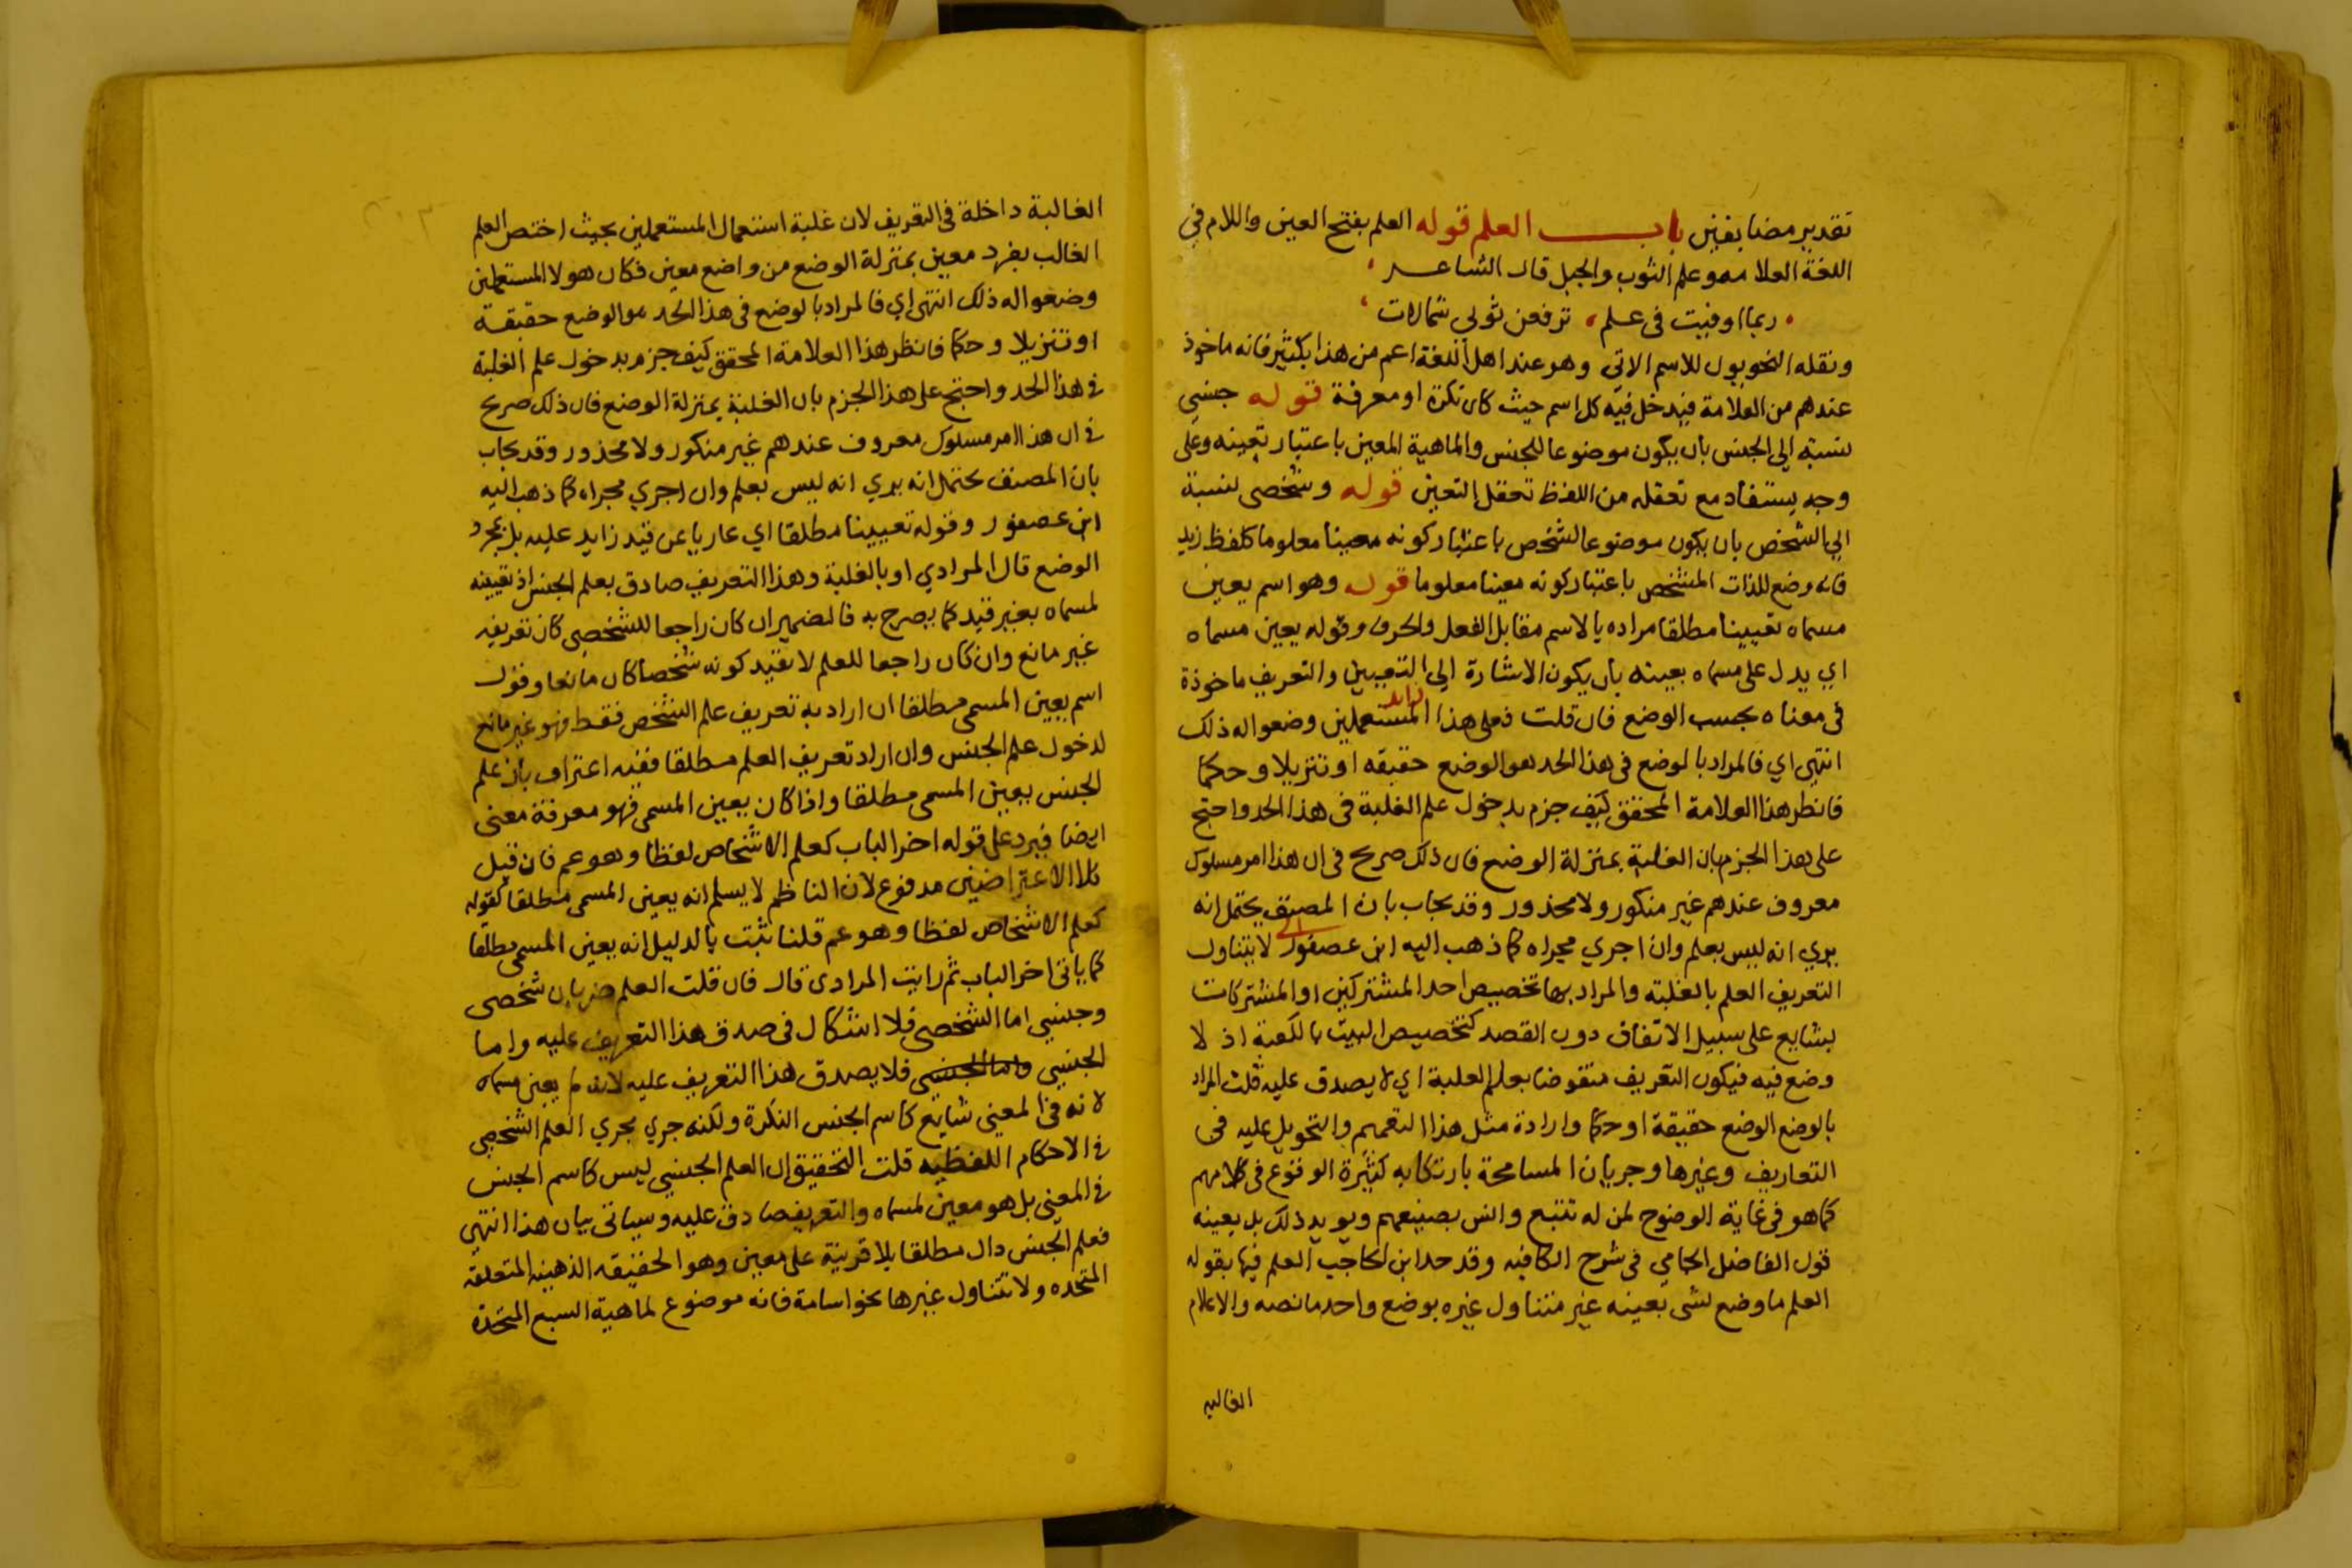 تقدير مضا يفين باب العلم قوله العلم بفتح العين واللام في
اللغة العلا مهو علم الثوب والجبل قال الشاعر
ربما اوفيت في علم ترفعن ثوبي شمالات
ونقله النحويون للاسم الاتي وهو عند اهل اللغة اعم من هذا بكثير فانه ماخوذ
عندهم من العلامة فيدخل فيه كل اسم حيث كان نكرة او معرفة قوله جنسي
نسبته الي الجنس بان يكون موضوعا للجنس والماهية المعين باعتبار تعينه وعلي
وجه يستفاد مع تعقله من اللفظ تعقل التعين قوله وشخصي نسبة
الي الشخص بان يكون موضوعا لشخص باعتبار كونه معينا معلوما كلفظ زيد
فانه وضع للذات المشخص باعتبار كونه معينا معلوما قوله وهو اسم يعين
مسماه تعيينا مطلقا مراده بالاسم مقابل الفعل والحرف وقوله يعين مسماه
اي يدل علي مسماه بعينه بان يكون الاشارة الي التعيين والتعريف ماخوذة
في معناه بحسب الوضع فان قلت فعلي هذا المستعملين زايد وضعوا له ذلك
انتهي اي فالمراد بالوضع في هذا الحد هو الوضع حقيقه او تنزيلا وحكما
فانظر هذا العلامة المحقق كيف جزم بدخول علم الغلبة في هذا الحد واحتج
علي هذا الجزم بان الغلبة بمنزلة الوضع فان ذلك صريح في ان هذا امر مسلوك
معروف عندهم غير منكور ولا محذور وقد يجاب بان المصنف يحتمل انه
يري انه ليس بعلم وان اجري مجراه كما ذهب اليه ابن عصفور الي لا يتناول
التعريف العلم بالغلبة والمراد بها تخصيص احد المشتركين او المشتركات
بشايع علي سبيل الاتفاق دون القصد كتخصيص البيت بالكعبة اذ لا
وضع فيه فيكون التعريف منقوضا بعلم الغلبة اي لا يصدق عليه قلت المراد
بالوضع الوضع حقيقة او حكما وارادة مثل هذا التعميم والتحويل عليه في
التعاريف وغيرها وجريان المسامحة بارتكابه كثيرة الوقوع في كلامهم
كما هو في غاية الوضوح لمن له تتبع وانس بصنيعهم ويويد ذلك بل يعينه
قول الفاضل الجامي في شرح الكافيه وقد حد ابن الحاجب العلم فيها بقوله
العلم ما وضع لشي بعينه غير متناول غيره بوضع واحد ما نصه والاعلام
الغالبه
الغالبة داخلة في التعريف لان غلبة استعمال المستعملين بحيث اختص العلم
الغالب بفرد معين بمنزلة الوضع من واضع معين فكان هولا المستعملين
وضعوا له ذلك انتهي اي فالمراد بالوضع في هذا الحد هو الوضع حقيقة
او تنزيلا وحكما فانظر هذا العلامة المحقق كيف جزم بدخول علم الغلبة
في هذا الحد واحتج علي هذا الجزم بان الغلبة بمنزلة الوضع فان ذلك صريح
في ان هذا امر مسلوك معروف عندهم غير منكور ولا محذور وقد يجاب
بان المصنف يحتمل انه يري انه ليس بعلم وان اجري مجراه كما ذهب اليه
ابن عصفور وقوله تعيينا مطلقا اي عاريا عن قيد زايد عليه بل بمجرد
الوضع قال المرادي او بالغلبة وهذا التعريف صادق بعلم الجنس اذ تعيينه
لمسماه بغير قيد كما يصرح به فالضمير ان كان راجعا للشخصي كان تعريفه
غير مانع وان كان راجعا للعلم لا بقيد كونه شخصا كان مانعا وقول
اسم يعين المسمي مطلقا ان اراد به تعريف علم الشخص فقط فهو غير مانع
لدخول علم الجنس وان اراد تعريف العلم مطلقا ففيه اعتراف بان علم
الجنس يعين المسمي مطلقا واذا كان يعين المسمي فهو معرفة معني
ايضا فيرد علي قوله اخر الباب كعلم الاشخاص لفظا وهو عم فان قيل
كلا الاعتراضين مدفوع لان الناظم لا يسلم انه يعين المسمي مطلقا كقوله
كعلم الاشخاص لفظا وهو عم قلنا ثبت بالدليل انه يعين المسمي مطلقا
كما ياتي اخر الباب ثم رايت المرادي قال فان قلت العلم ضربان شخصي
وجنسي اما الشخصي فلا اشكال في صدق هذا التعريف عليه واما
الجنسي واما الجنسي فلا يصدق هذا التعريف عليه لانه لم يعين مسماه
لانه في المعني شايع كاسم الجنس النكرة ولكنه جري مجري العلم الشخصي
في الاحكام اللفظيه قلت التحقيق ان العلم الجنسي ليس كاسم الجنس
في المعني بل هو معين لمسماه والتعريف صادق عليه وسياتي بيان هذا انتهي
فعلم الجنس دال مطلقا بلا قرينة علي معين وهو الحقيقه الذهنيه المتعلقه
المتحده ولا تتناول غيرها نحو اسامة فانه موضوع لماهية السبع المتحدة